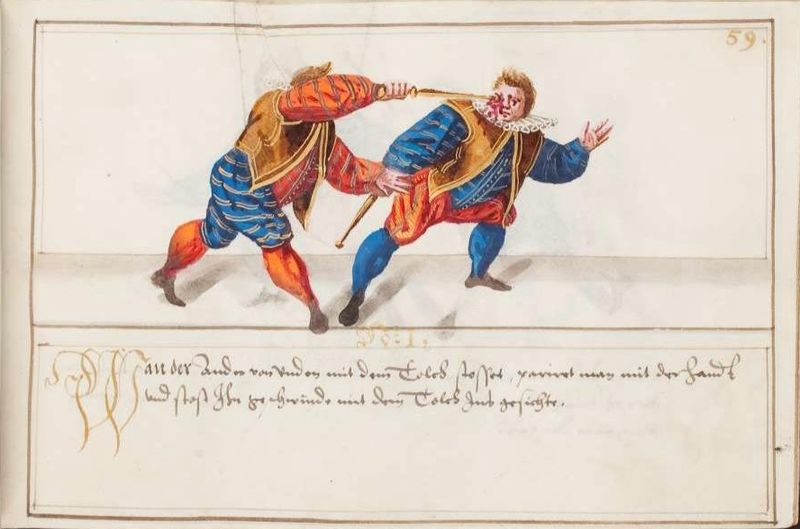 59.
No: 1,
Wan der Ander von unden mit dem Tolch stosset, pariret man mit der handt
und stost Ihn geschwinde mit dem Tolch Ins gesichte.